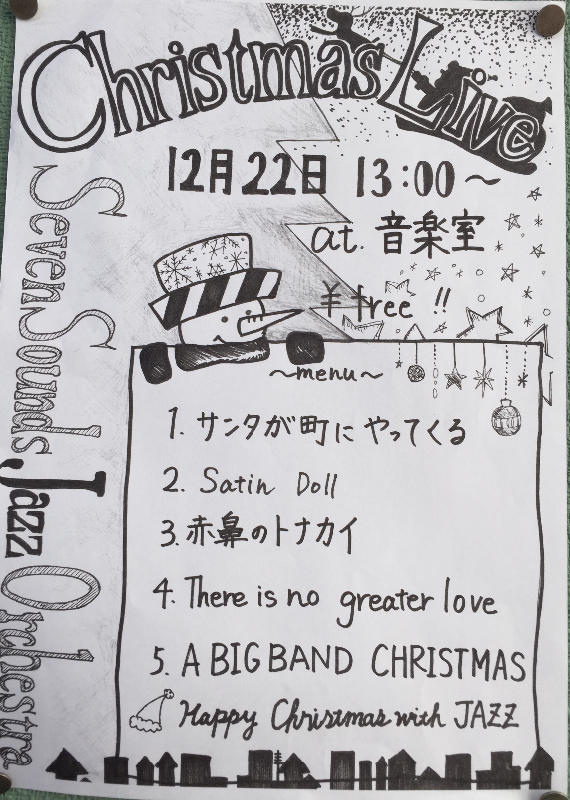 Christmas Live
12月22日 13:00～
at. 音楽室
¥ free !!
Seven Sounds Jazz Orchestra
～menu～
1. サンタが町にやってくる
2. Satin Doll
3. 赤鼻のトナカイ
4. There is no greater love
5. A BIG BAND CHRISTMAS
Happy Christmas with JAZZ